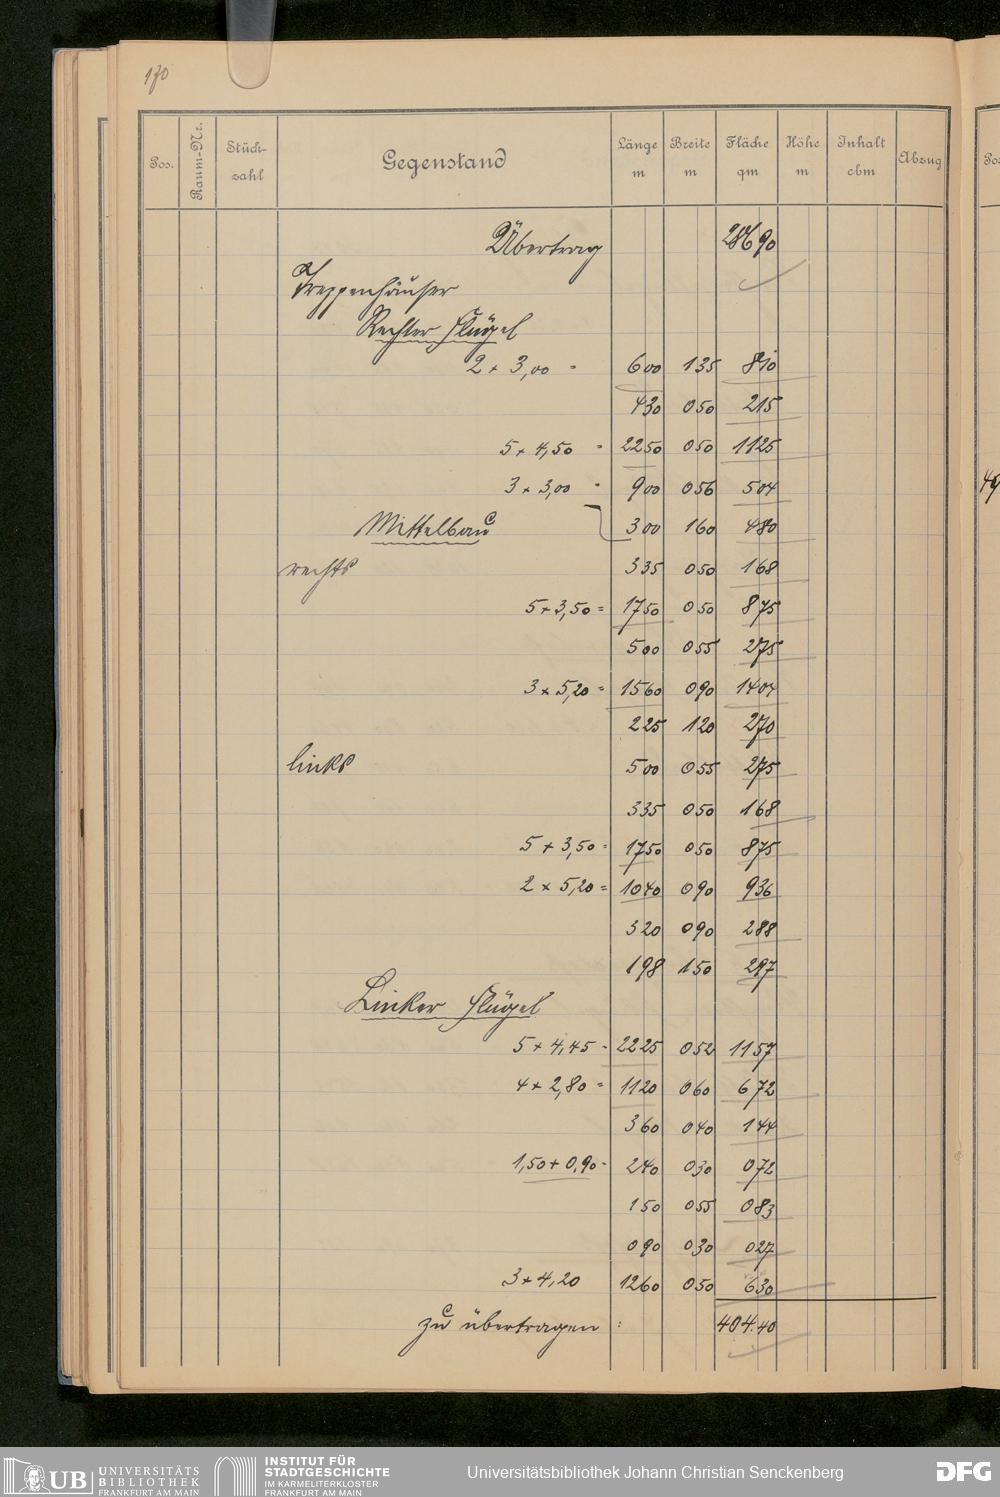 170
Pos. Raum-Nr. Stück-zahl Gegenstand Länge m Breite m Fläche qm Höhe m Inhalt cbm Abzug
Übertrag 286 90
Treppenhäuser
Rechter Flügel
2 × 3,00 = 6 00 1 35 8 10
4 30 0 50 2 15
5 × 4,50 = 22 50 0 50 11 25
3 × 3,00 = 9 00 0 56 5 04
Mittelbau 3 00 1 60 4 80
rechts 3 35 0 50 1 68
5 × 3,50 = 17 50 0 50 8 75
5 00 0 55 2 75
3 × 5,20 = 15 60 0 90 14 04
2 25 1 20 2 70
links 5 00 0 55 2 75
3 35 0 50 1 68
5 × 3,50 = 17 50 0 50 8 75
2 × 5,20 = 10 40 0 90 9 36
3 20 0 90 2 88
1 98 1 50 2 97
Linker Flügel
5 × 4,45 = 22 25 0 52 11 57
4 × 2,80 = 11 20 0 60 6 72
3 60 0 40 1 44
1,50 + 0,90 = 2 40 0 30 0 72
1 50 0 55 0 83
0 90 0 30 0 27
3 × 4,20 12 60 0 50 6 30
zu übertragen : 404.40
UB UNIVERSITÄTS BIBLIOTHEK FRANKFURT AM MAIN
INSTITUT FÜR STADTGESCHICHTE IM KARMELITERKLOSTER FRANKFURT AM MAIN
Universitätsbibliothek Johann Christian Senckenberg
DFG